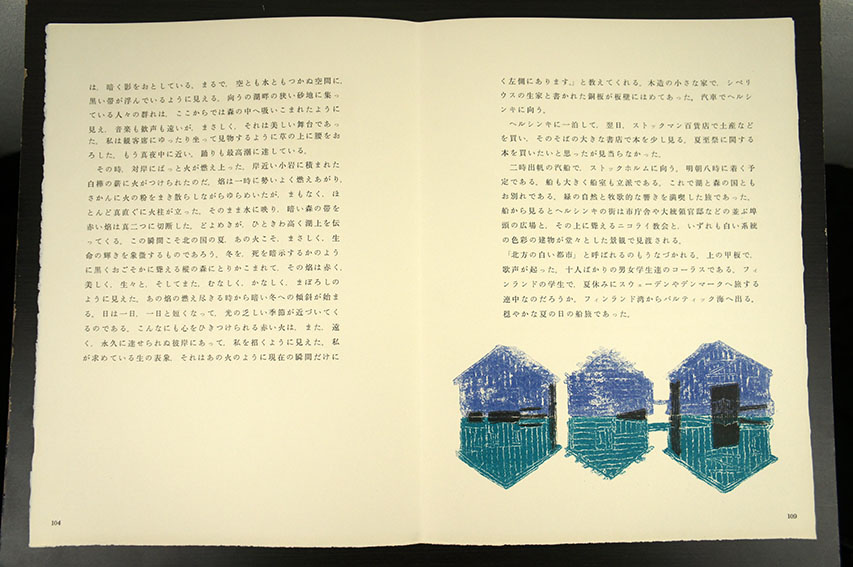 は、暗く影をおとしている。まるで、空とも水ともつかぬ空間に、
黒い帯が浮んでいるように見える。向うの湖畔の狭い砂地に集っ
ている人々の群れは、ここからでは森の中へ吸いこまれたように
見え、音楽も歓声も遠いが、まさしく、それは美しい舞台であっ
た。私は観客席にゆったり坐って見物するように草の上に腰をお
ろした。もう真夜中に近い。踊りも最高潮に達している。
その時、対岸にぱっと火が燃え上った。岸近い小岩に積まれた
白樺の薪に火がつけられたのだ。焔は一時に勢いよく燃えあがり、
さかんに火の粉をまき散らしながらゆらめいたが、まもなく、ほ
とんど真直ぐに火柱が立った。そのまま水に映り、暗い森の帯を
赤い焔は真二つに切断した。どよめきが、ひときわ高く湖上を伝
ってくる。この瞬間こそ北の国の夏、あの火こそ、まさしく、生
命の輝きを象徴するものであろう。冬を、死を暗示するかのよう
に黒くおごそかに聳える樅の森にとりかこまれて、その焔は赤く、
美しく、生々と、そしてまた、むなしく、かなしく、まぼろしの
ように見えた。あの焔の燃え尽きる時から暗い冬への傾斜が始ま
る。日は一日、一日と短くなって、光の乏しい季節が近づいてく
るのである。こんなにも心をひきつけられる赤い火は、また、遠
く、永久に達せられぬ彼岸にあって、私を招くように見えた。私
が求めている生の表象、それはあの火のように現在の瞬間だけに
104
く左側にあります。」と教えてくれる。木造の小さな家で、シベリ
ウスの生家と書かれた銅板が板壁にはめてあった。汽車でヘルシ
ンキに向う。
ヘルシンキに一泊して、翌日、ストックマン百貨店で土産など
を買い、そのそばの大きな書店で本を少し見る。夏至祭に関する
本を買いたいと思ったが見当らなかった。
二時出帆の汽船で、ストックホルムに向う。明朝八時に着く予
定である。船も大きく船室も立派である。これで湖と森の国とも
お別れである。緑の自然と牧歌的な響きを満喫した旅であった。
船から見るとヘルシンキの街は市庁舎や大統領官邸などの並ぶ埠
頭の広場と、その上に聳えるニコライ教会と、いずれも白い系統
の色彩の建物が堂々とした景観で見渡される。
「北方の白い都市」と呼ばれるのもうなづかれる。上の甲板で、
歌声が起った。十人ばかりの男女学生達のコーラスである。フィ
ンランドの学生で、夏休みにスウェーデンやデンマークへ旅する
連中なのだろうか。フィンランド湾からバルティック海へ出る。
穏やかな夏の日の船旅であった。
109